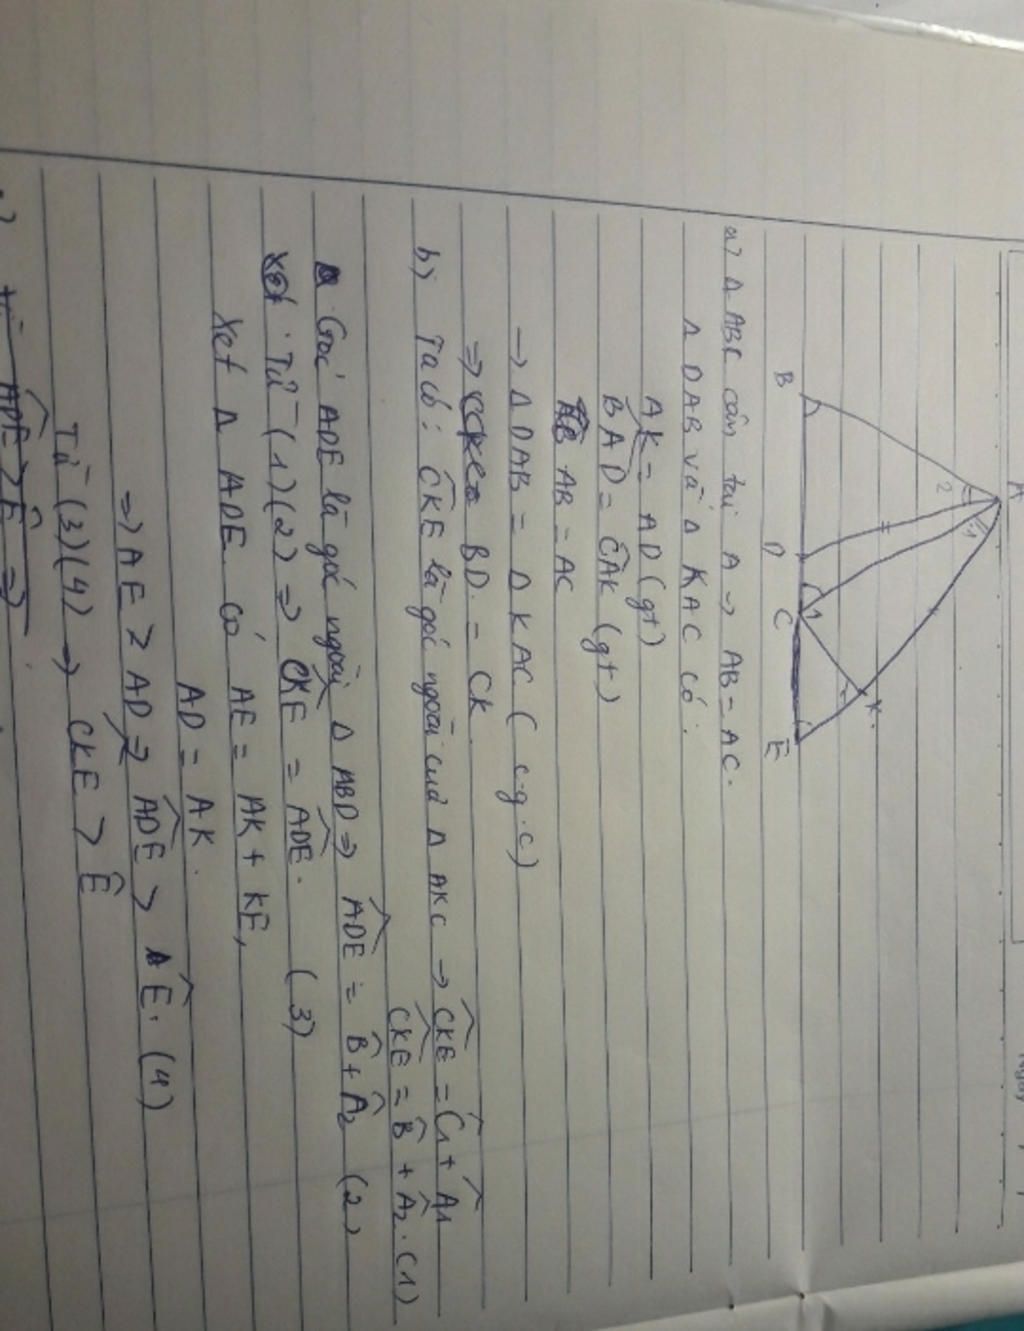 A
2
1
B
D
C
1
K
E
a) Δ ABC cân tại A → AB = AC.
Δ DAB và Δ KAC có:
AK = AD (gt)
BAD = CAK (gt)
AB = AC
→ Δ DAB = Δ KAC (c-g.c)
⇒ BD = CK
b) Ta có: CKE là góc ngoài của Δ AKC → CKE = C1 + A1
CKE = B + A2. (1)
Góc ADE là góc ngoài Δ ABD ⇒ ADE = B + A2 (2)
Từ (1) (2) ⇒ CKE = ADE. (3)
Xét Δ ADE có AE = AK + KE,
AD = AK.
⇒ AE > AD ⇒ ADE > E. (4)
Từ (3) (4) → CKE > E
ADE > E ⇒